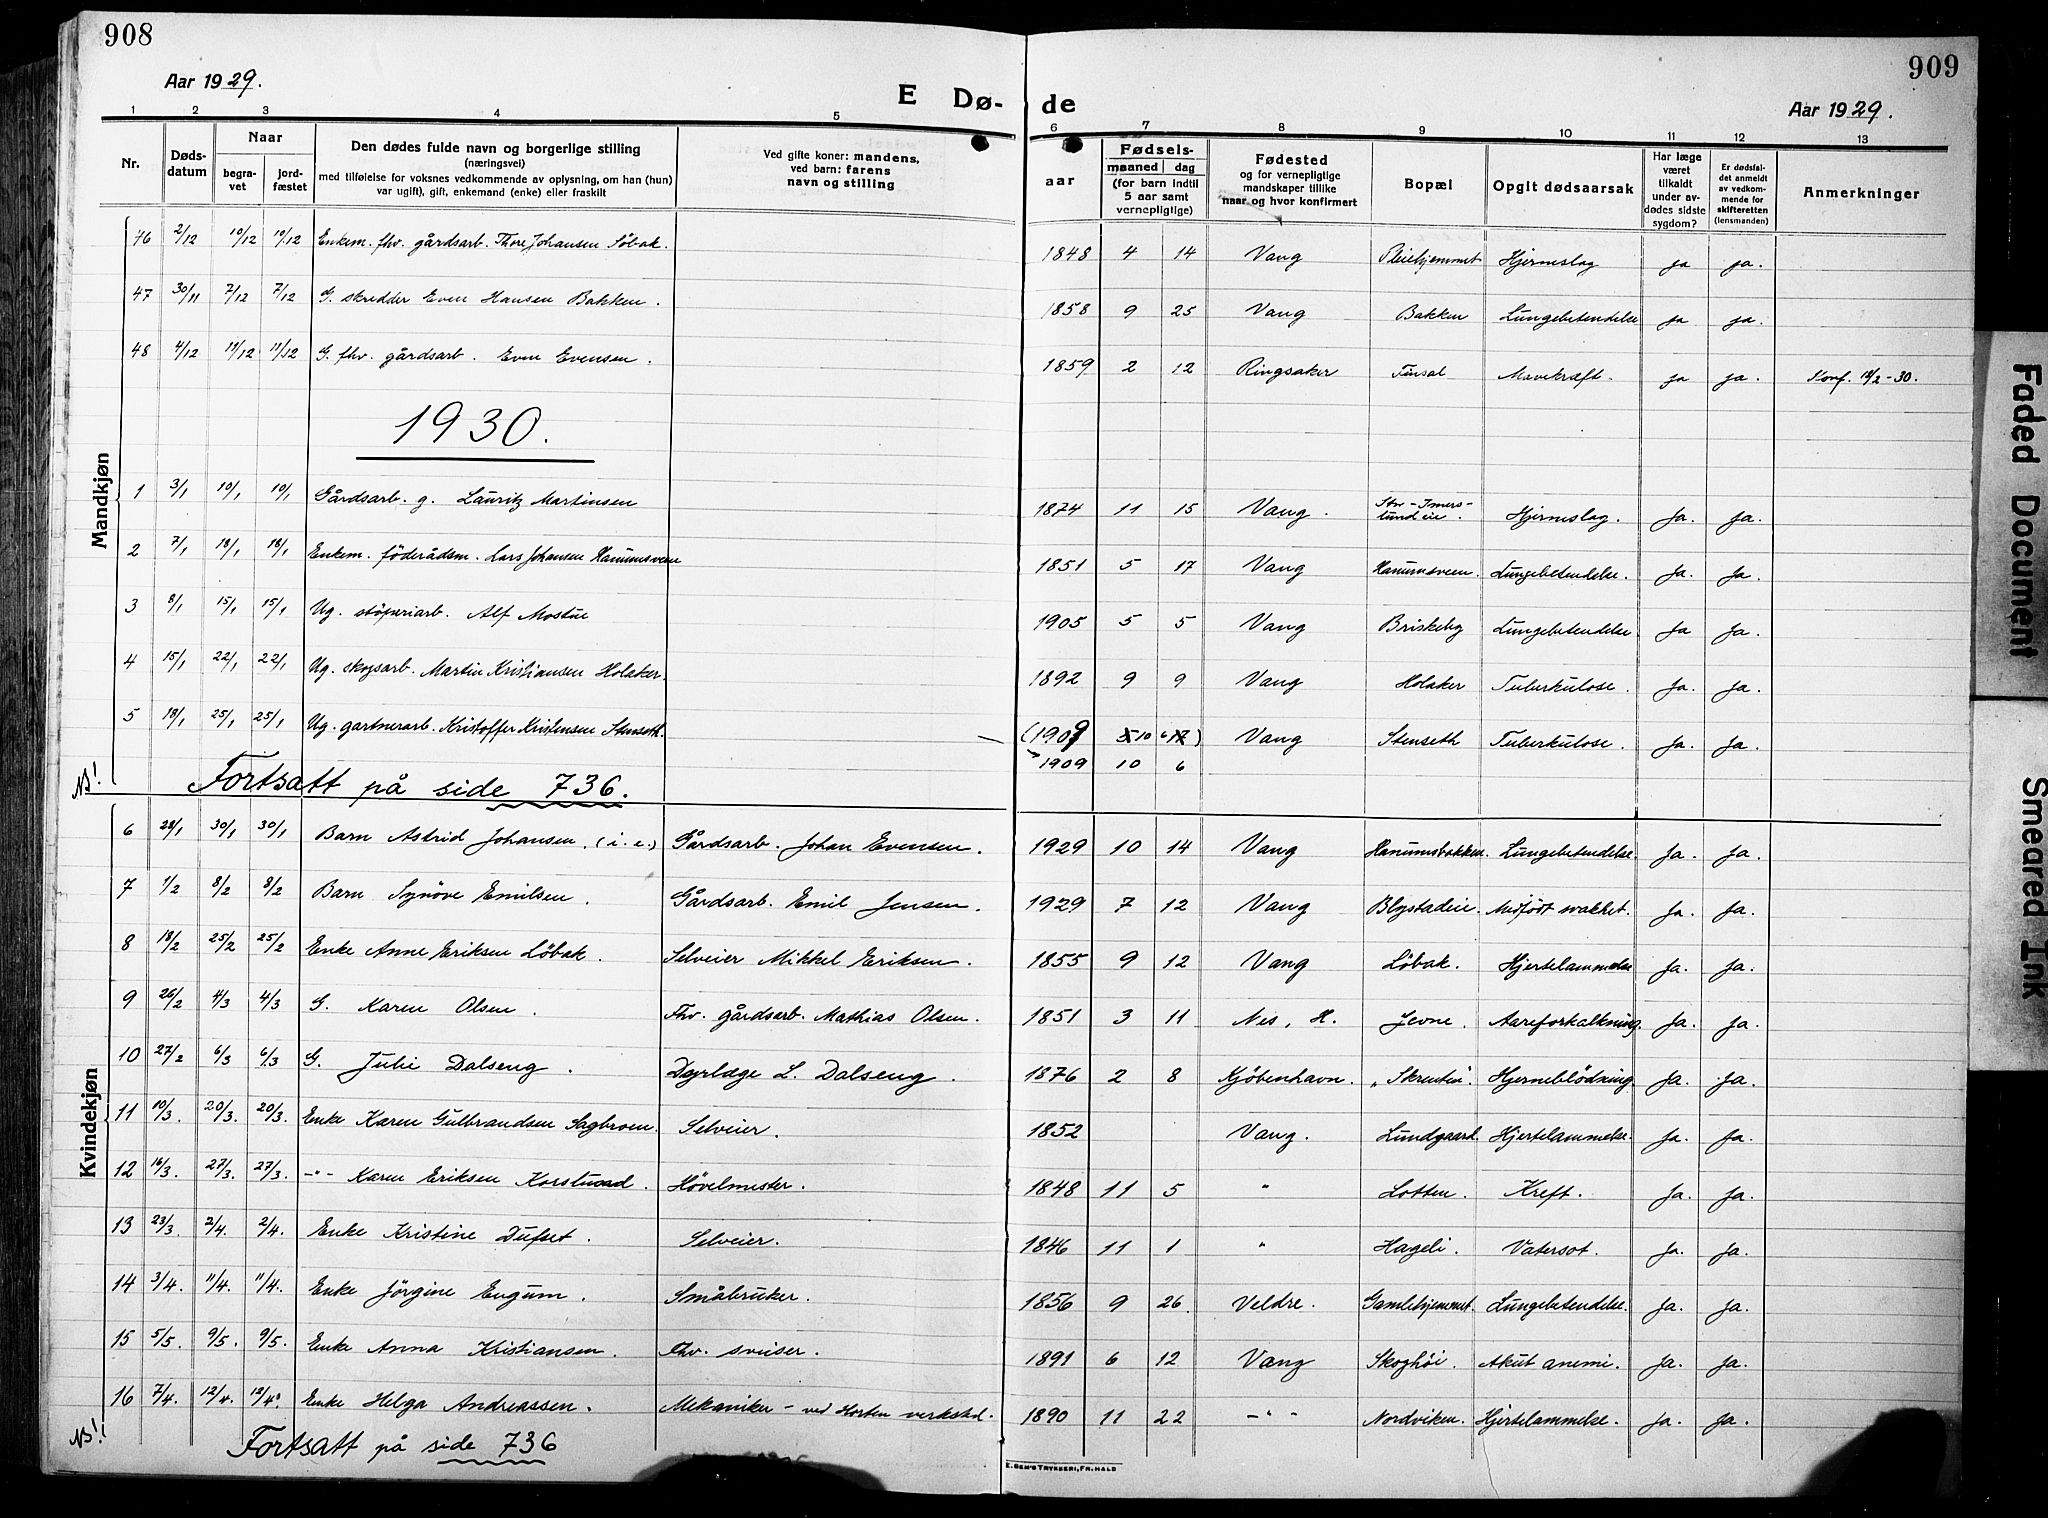 908
909
Aar 1929.
E Dø-
de
Aar 1929.
1 2 3 4 5 6 7 8 9 10 11 12 13
Nr.
Døds-
datum
Naar
begra-
vet
jord-
fæstet
Den dødes fulde navn og borgerlige stilling
(næringsvei)
med tilføielse for voksnes vedkommende av oplysning, om han (hun)
var ugift), gift, enkemand (enke) eller fraskilt
Ved gifte koner: mandens,
ved barn: farens
navn og stilling
Fødsels-
aar
maaned
dag
(for barn indtil
5 aar samt
vernepligtige)
Fødested
og for vernepligtige
mandskaper tillike
naar og hvor konfirmert
Bopæl
Opgit dødsaarsak
Har læge
været
tilkaldt
under av-
dødes sidste
sygdom?
Er dødsfal-
det anmeldt
av vedkom-
mende for
skifteretten
(lensmanden)
Anmerkninger
Mandkjøn
46 2/12 10/12 10/12 Enkem. fhv. gårdsarb. Thore Johansen Löbak. 1848 4 14 Vang Pleiehjemmet Hjerneslag ja ja.
47 30/11 7/12 7/12 G. skredder Even Hansen Bakken. 1858 9 25 Vang Bakken Lungebetendelse ja ja.
48 4/12 11/12 11/12 G. fhv. gårdsarb. Even Evensen. 1859 2 12 Ringsaker Finsal Mavekræft. ja ja. Konf. 12/2-30.
1930.
1 3/1 10/1 10/1 Gårdsarb. g. Lauritz Martinsen 1874 11 15 Vang. Stor-Imers-
lundeie. Hjerneslag. Ja. Ja.
2 7/1 18/1 18/1 Enkem. föderådsm. Lars Johansen Hanumsveen 1851 5 17 Vang Hanumsveen. Lungebetendelse. Ja. Ja.
3 8/1 15/1 15/1 Ug. stöperiarb. Alf Mostue 1905 5 5 Vang Briskeby Lungebetendelse. Ja Ja.
4 15/1 22/1 22/1 Ug. skogsarb. Martin Kristiansen Holaker. 1892 9 9 Vang Holaker Tuberkulose. Ja. Ja.
5 18/1 25/1 25/1 Ug. gartnerarb. Kristoffer Kristensen Stenseth. (1909 5 10 6 17) Vang Stenseth Tuberkulose. Ja. Ja.
1909 10 6
NB! Fortsatt på side 736.
Kvindekjøn
6 28/1 30/1 30/1 Barn Astrid Johansen. (i. e.) Gårdsarb. Johan Evensen. 1929 10 14 Vang Hanumsbakken. Lungebetendelse. Ja. Ja.
7 1/2 8/2 8/2 Barn Synöve Emilsen. Gårdsarb. Emil Jensen. 1929 7 12 Vang Blystadeie. Medfödt svakhet. Ja. Ja.
8 18/2 25/2 25/2 Enke Anne Eriksen Löbak. Selveier Mikkel Eriksen. 1855 9 12 Vang Löbak. Hjertelammelse Ja. Ja.
9 26/2 4/3 4/3 G. Karen Olsen. Fhv. gårdsarb. Mathias Olsen. 1851 3 11 Nes, H. Jevne. Aareforkalkning. Ja. Ja.
10 27/2 6/3 6/3 G. Julie Dalseng. Dyrlæge L. Dalseng. 1876 2 8 Kjöbenhavn. "Skrenten". Hjerneblödning. Ja. Ja.
11 10/3. 20/3. 20/3. Enke Karen Gulbrandsen Sagbroen. Selveier. 1852 Vang. Lundgaard. Hjertelammelse. Ja. Ja.
12 16/3. 27/3. 27/3. -"- Karen Eriksen Korstuad. Hövelmester. 1848 11 5 " Lotten. Kreft. Ja. Ja.
13 23/3. 2/4. 2/4. Enke Kristine Dufset. Selveier. 1846 11 1 " Hageli. Vatersot. Ja. Ja.
14 3/4. 11/4. 11/4. Enke Jörgine Engum. Småbruker. 1856 9 26. Veldre. Gamlehjemmet. Lungebetendelse. Ja. Ja.
15 5/5. 9/5. 9/5. Enke Anna Kristiansen. Fhv. sveiser. 1891 6 12 Vang Skoghöi. Akut anemi. Ja. Ja.
16 7/4. 12/4. 12/4. Enke Helga Andreassen. Mekaniker - ved Horten verksted. 1890 11 22 -"- Nordviken. Hjertelammelse. Ja. Ja.
NB! Fortsatt på side 736
E. SEM'S TRYKKERI, FR.HALD
Faded Document
Smeared Ink